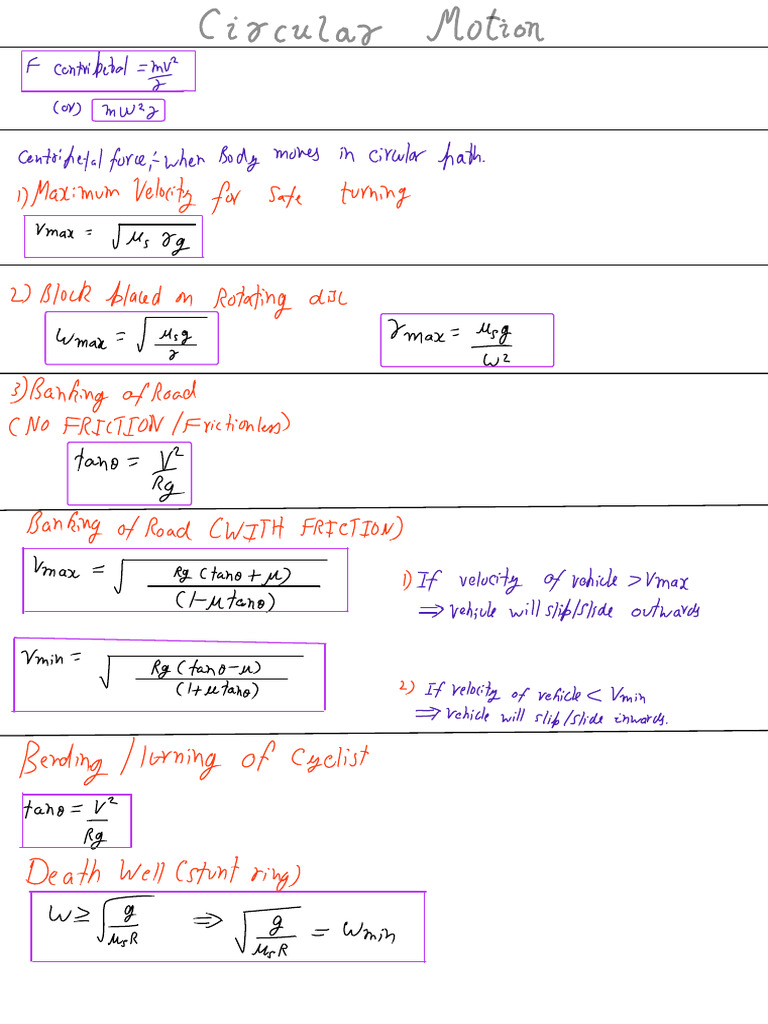 Circular Motion
F centripetal = mv²/r
(or) mω²r
Centripetal force;- when Body moves in circular path.
1) Maximum Velocity for safe turning
Vmax = √(μs rg)
2) Block placed on Rotating disc
ωmax = √(μsg/r)
rmax = μsg/ω²
3) Banking of Road
(NO FRICTION / Frictionless)
tanθ = V²/Rg
Banking of Road (WITH FRICTION)
Vmax = √(Rg(tanθ+μ)/(1-μtanθ))
1) If velocity of vehicle > Vmax
⇒ vehicle will slip/slide outwards
Vmin = √(Rg(tanθ-μ)/(1+μtanθ))
2) If velocity of vehicle < Vmin
⇒ vehicle will slip/slide inwards.
Bending / Turning of cyclist
tanθ = V²/Rg
Death Well (stunt ring)
ω ≥ √(g/μsR) ⇒ √(g/μsR) = ωmin